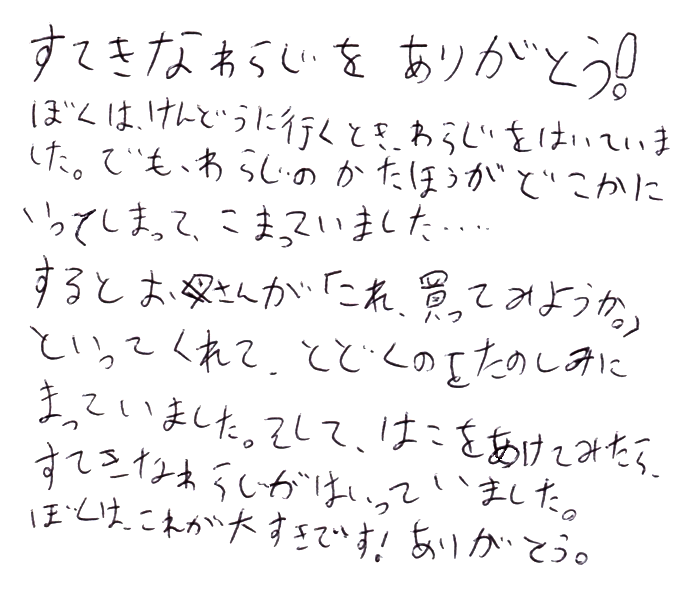 すてきなわらじを ありがとう!
ぼくは、けんどうに行くとき、わらじをはいていま
した。でも、わらじのかたほうがどこかに
いってしまって、こまっていました・・・・
するとお母さんが「これ、買ってみようか。」
といってくれて、とどくのをたのしみに
まっていました。そして、はこをあけてみたら、
すてきなわらじがはいっていました。
ぼくは、これが大すきです!ありがとう。